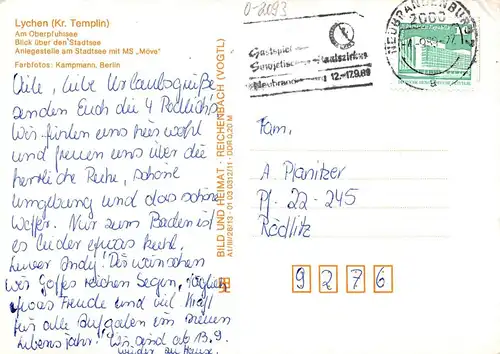 Lychen (Kr. Templin)
Am Oberpfuhlsee
Blick über den Stadtsee
Anlegestelle am Stadtsee mit MS „Möve"
Farbfotos: Kampmann, Berlin
Viele, liebe Urlaubsgrüße
senden Euch die 4 Redlichs.
Wir finden uns hier wohl
und freuen uns über die
herrliche Ruhe, schöne
Umgebung und das schöne
Wasser. Nur zum Baden ist
es leider etwas kühl.
Lieber Andy! Dir wünschen
wir Gottes reichen Segen, täglich
etwas Freude und viel Kraft
für alle Aufgaben im neuen
Lebensjahr! Wir sind ab 13.9.
wieder zu Hause.
BILD UND HEIMAT · REICHENBACH (VOGTL)
A1/III/26/13 · 01 03 0312/11 · DDR 0,20 M
0-2093
Gastspiel
Sowjetischer Staatszirkus
Neubrandenburg 12.-17.9.89
NEUBRANDENBURG 1
2000
Fam.
A. Planitzer
Pf. 22-245
Rödlitz
9276